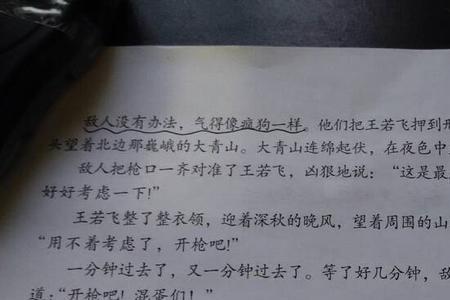 敌人没有办法，气得像疯狗一样。他们把王若飞押到刑
头望着北边那巍峨的大青山。大青山连绵起伏，在夜色中
敌人把枪口一齐对准了王若飞，凶狠地说：“这是最
好好考虑一下！”
王若飞整了整衣领，迎着深秋的晚风，望着周围的山
“用不着考虑了，开枪吧！”
一分钟过去了，又一分钟过去了。等了好几分钟，敌
道：“开枪吧！混蛋们！”